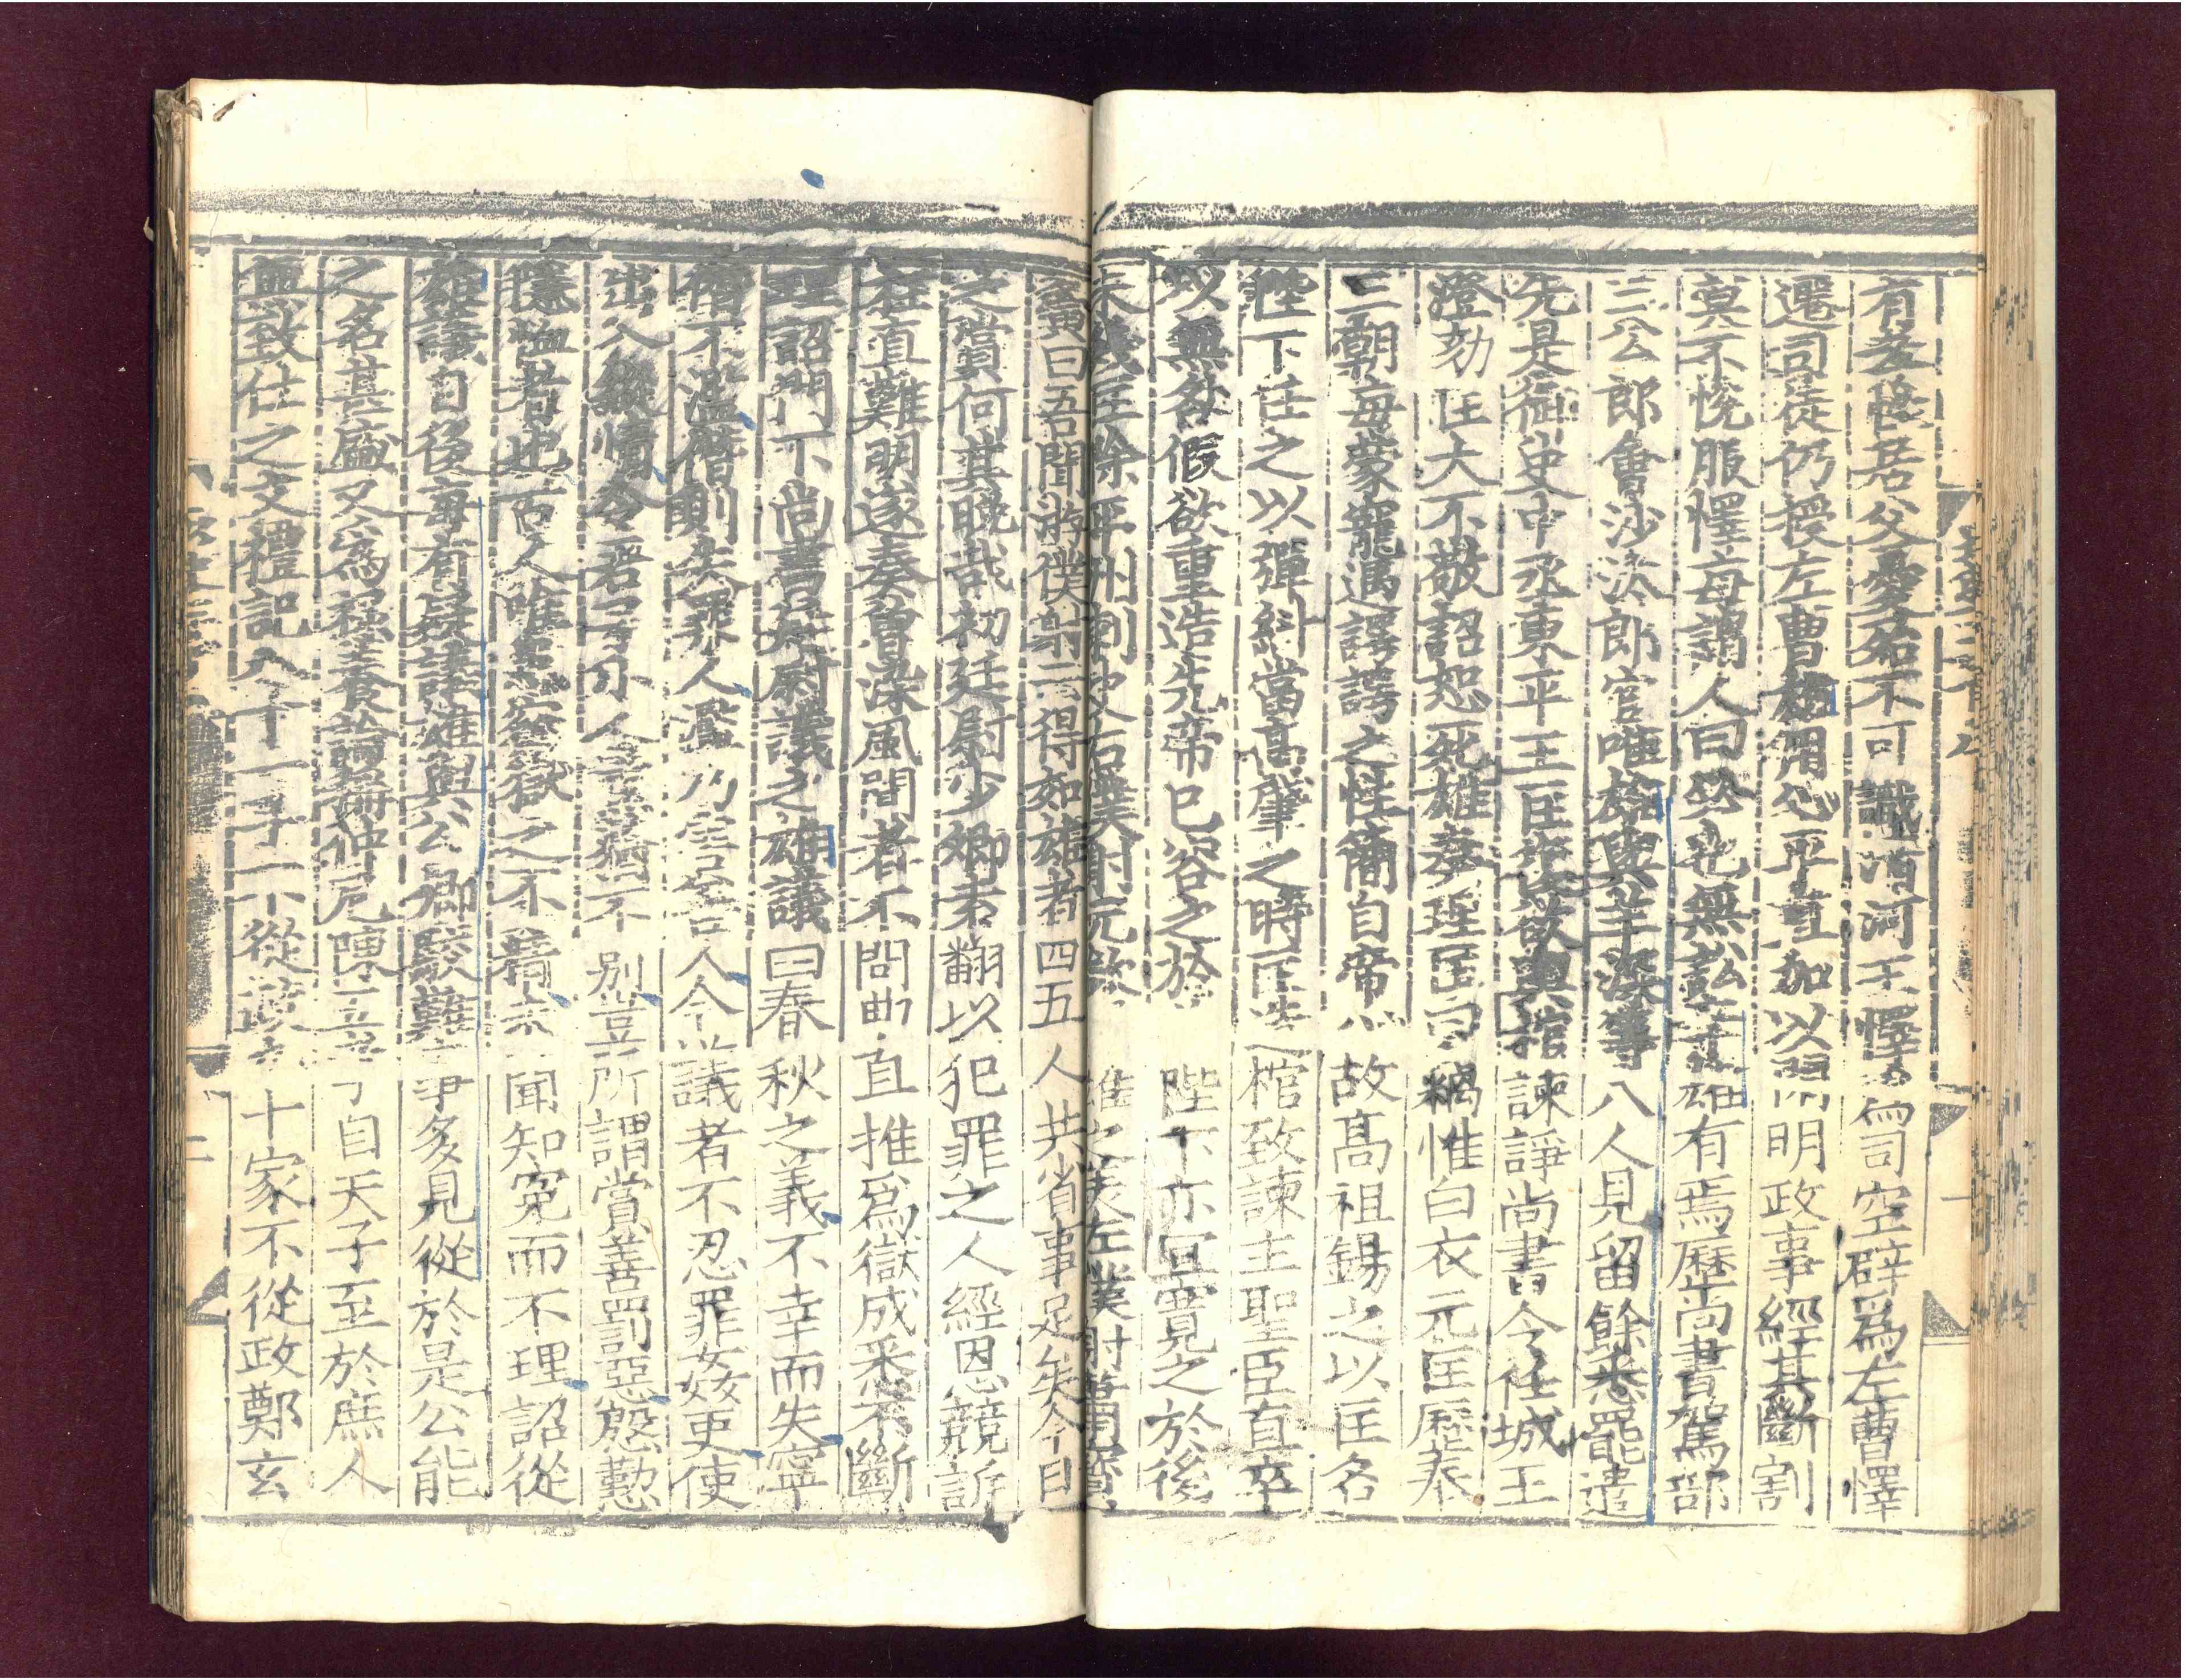 有孝性居父憂殆不可識清河王懌爲司空辟爲左曹懌
遷司徒仍授左曹雄用心平直加以閑明政事經其斷割
莫不悅服懌每謂人曰必也無訟辛雄有焉歷尚書駕部
三公郎會沙汰郎官唯雄與羊深等八人見留餘悉罷遣
先是御史中丞東平王匡復欲輿棺諫諍尚書令任城王
澄劾匡大不敬詔恕死雄奏理匡曰竊惟白衣元匡歷奉
三朝每蒙寵遇諤諤之性簡自帝心故高祖錫之以匡名
陛下任之以彈糾當高肇之時匡造棺致諫主聖臣直卒
以無咎假欲重造先帝已容之於陛下亦宜寬之於後
未幾匡除平州刺史右僕射元欽雄之美左僕射蕭寶
夤曰吾聞游僕射云得如雄者四五人共省事足矣今日
之賞何其晚哉初廷尉少卿袁翻以犯罪之人經恩競訴
枉直難明遂奏曾染風聞者不問曲直推爲獄成悉不斷
理詔門下尚書廷尉議之雄議曰春秋之義不幸而失寧
僭不濫僭則失罪人濫乃害善人今議者不忍罪姦吏使
出入縱情令君子小人薰蕕不別豈所謂賞善罰惡慇懃
隱恤者也古人唯患察獄之不精未聞知冤而不理詔從
雄議自後每有疑議雄與公卿駁難事多見從於是公能
之名甚盛又爲祿養論稱仲尼陳五孝自天子至於庶人
無致仕之文禮記八十一子不從政九十家不從政鄭玄